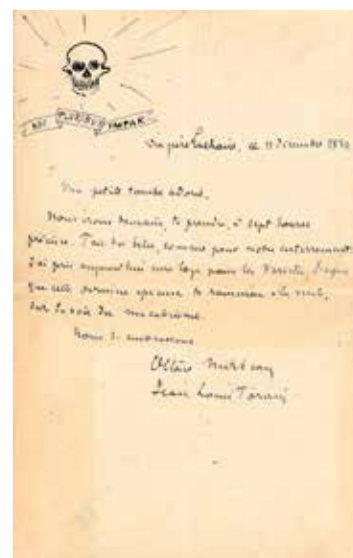 PLURIBUS IMPAR
Du père Lachaise, ce 11 Décembre
Ma petite tombe adorée,
Nous irons demain, te prendre, à sept heures
précises. Fais toi belle, comme pour notre enterrement.
J'ai pris aujourd'hui une loge pour les Variétés. J'espère
que cette dernière épreuve te ramènera à la
sur la voie du macabrisme.
Nous t'embrassons
Octave Mirbeau
Jean Louis Forain